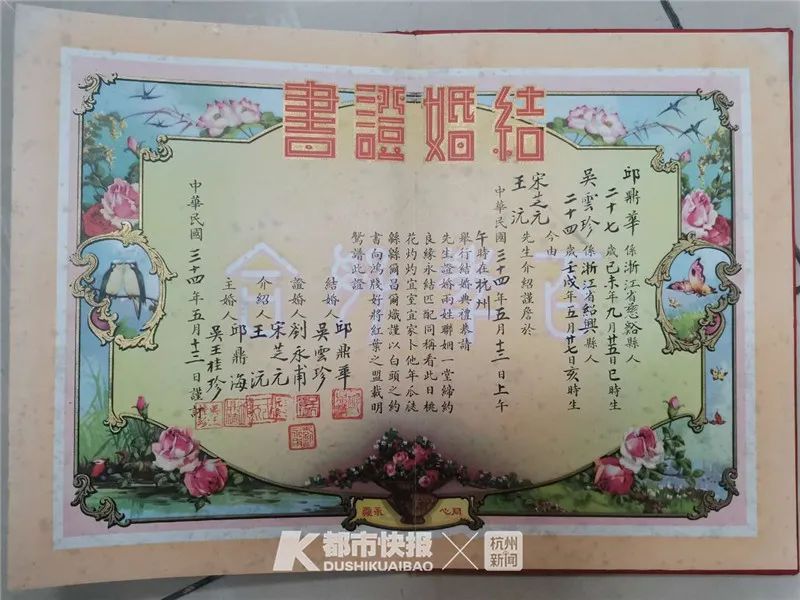 結婚證書
邱鼎華 係浙江省慈谿縣人
二十七歲己未年九月廿五日巳時生
吳雲珍 係浙江省紹興縣人
二十四歲壬戌年五月廿七日亥時生
今由
宋芝元
王沅
先生介紹謹詹於
中華民國三十四年五月十三日上午
午時在杭州
舉行結婚典禮恭請
先生證婚兩姓聯姻一堂締約
良緣永結匹配同稱看此日桃
花灼灼宜室宜家卜他年瓜瓞
緜緜爾昌爾熾謹以白頭之約
書向鴻牋好將紅葉之盟載明
鴛譜此證
結婚人 邱鼎華
吳雲珍
證婚人 劉永甫
介紹人 宋芝元
王沅
主婚人 邱鼎海
吳王桂珍
中華民國三十四年五月十三日謹訂
同心
都市快报
DUSHIKUAIBAO
杭州
新闻